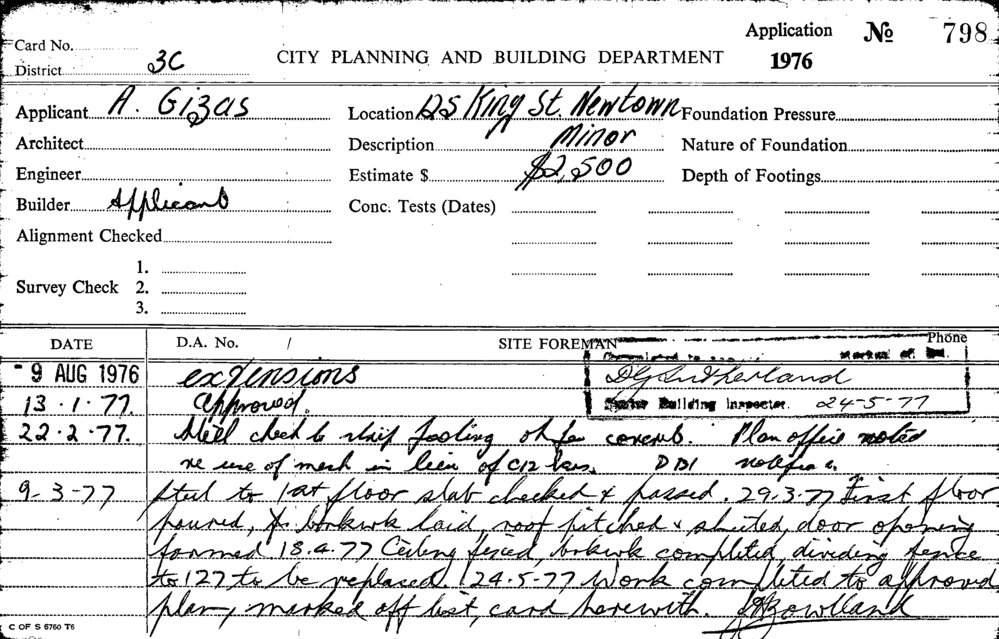 Application № 798
Card No.
District 3C CITY PLANNING AND BUILDING DEPARTMENT 1976
Applicant A. Gizas Location 125 King St. Newtown Foundation Pressure
Architect Description Minor Nature of Foundation
Engineer Estimate $ $2,500 Depth of Footings
Builder Applicant Conc. Tests (Dates)
Alignment Checked
1.
Survey Check 2.
3.
DATE D.A. No. / SITE FOREMAN Phone
- 9 AUG 1976 extensions Sutherland
13.1.77. Approved. Building Inspector. 24-5-77
22.2.77. Steel check to strip footing ok for concrete. Plan office noted
re use of mesh in lieu of C12 bars. DBI
9-3-77 steel to 1st floor slab checked & passed. 29.3.77 First floor
poured, brkwk laid, roof pitched & sheeted, door opening
formed 18.4.77 Ceiling fixed, brkwk completed, dividing fence
to 127 to be replaced. 24-5-77 Work completed to approved
plan, marked off list, card herewith. Rowlland
C OF S 6760 T6